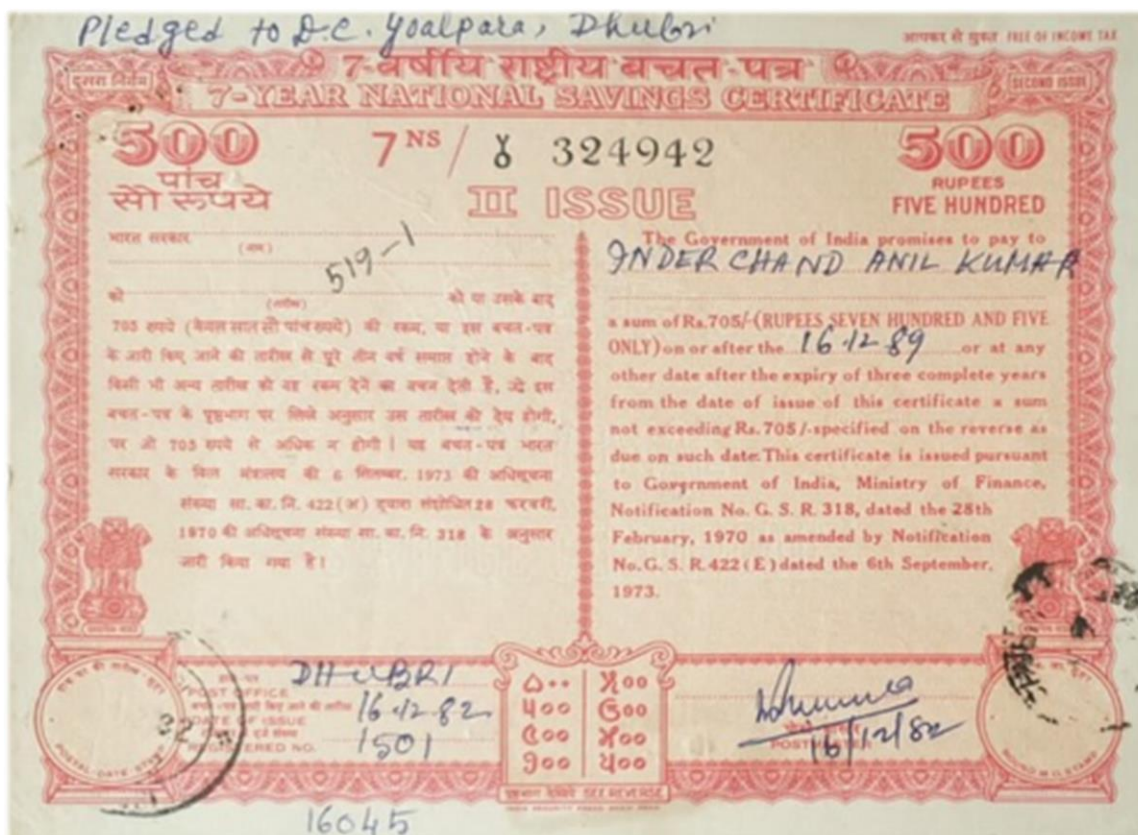 Pledged to D.C. Goalpara, Dhubri
आयकर से मुक्त FREE OF INCOME TAX
7-वर्षीय राष्ट्रीय बचत-पत्र
दूसरा निर्गम
7-YEAR NATIONAL SAVINGS CERTIFICATE
SECOND ISSUE
500
पांच
सौ रूपये
7 NS / 324942
II ISSUE
500
RUPEES
FIVE HUNDRED
भारत सरकार
(नाम)
519-1
को (तारीख) को या उसके बाद
705 रुपये (केवल सात सौ पांच रुपये) की रकम, या इस बचत-पत्र
के जारी किए जाने की तारीख से पूरे तीन वर्ष समाप्त होने के बाद
किसी भी अन्य तारीख को वह रकम देने का वचन देती है, जो इस
बचत-पत्र के पृष्ठभाग पर लिखे अनुसार उस तारीख को देय होगी,
पर जो 705 रुपये से अधिक न होगी। यह बचत-पत्र भारत
सरकार के वित्त मंत्रालय की 6 सितम्बर, 1973 की अधिसूचना
संख्या सा. का. नि. 422 (अ) द्वारा संशोधित 28 फरवरी,
1970 की अधिसूचना संख्या सा. का. नि. 318 के अनुसार
जारी किया गया है।
The Government of India promises to pay to
INDER CHAND ANIL KUMAR
a sum of Rs.705/-(RUPEES SEVEN HUNDRED AND FIVE
ONLY) on or after the 16.12.89 or at any
other date after the expiry of three complete years
from the date of issue of this certificate a sum
not exceeding Rs.705/-specified on the reverse as
due on such date. This certificate is issued pursuant
to Government of India, Ministry of Finance,
Notification No. G. S. R. 318, dated the 28th
February, 1970 as amended by Notification
No. G. S. R. 422 (E) dated the 6th September,
1973.
POST OFFICE DHUBRI
DATE OF ISSUE 16.12.82
REGISTERED NO. 1501
POSTMASTER
16/12/82
SEE REVERSE
16045